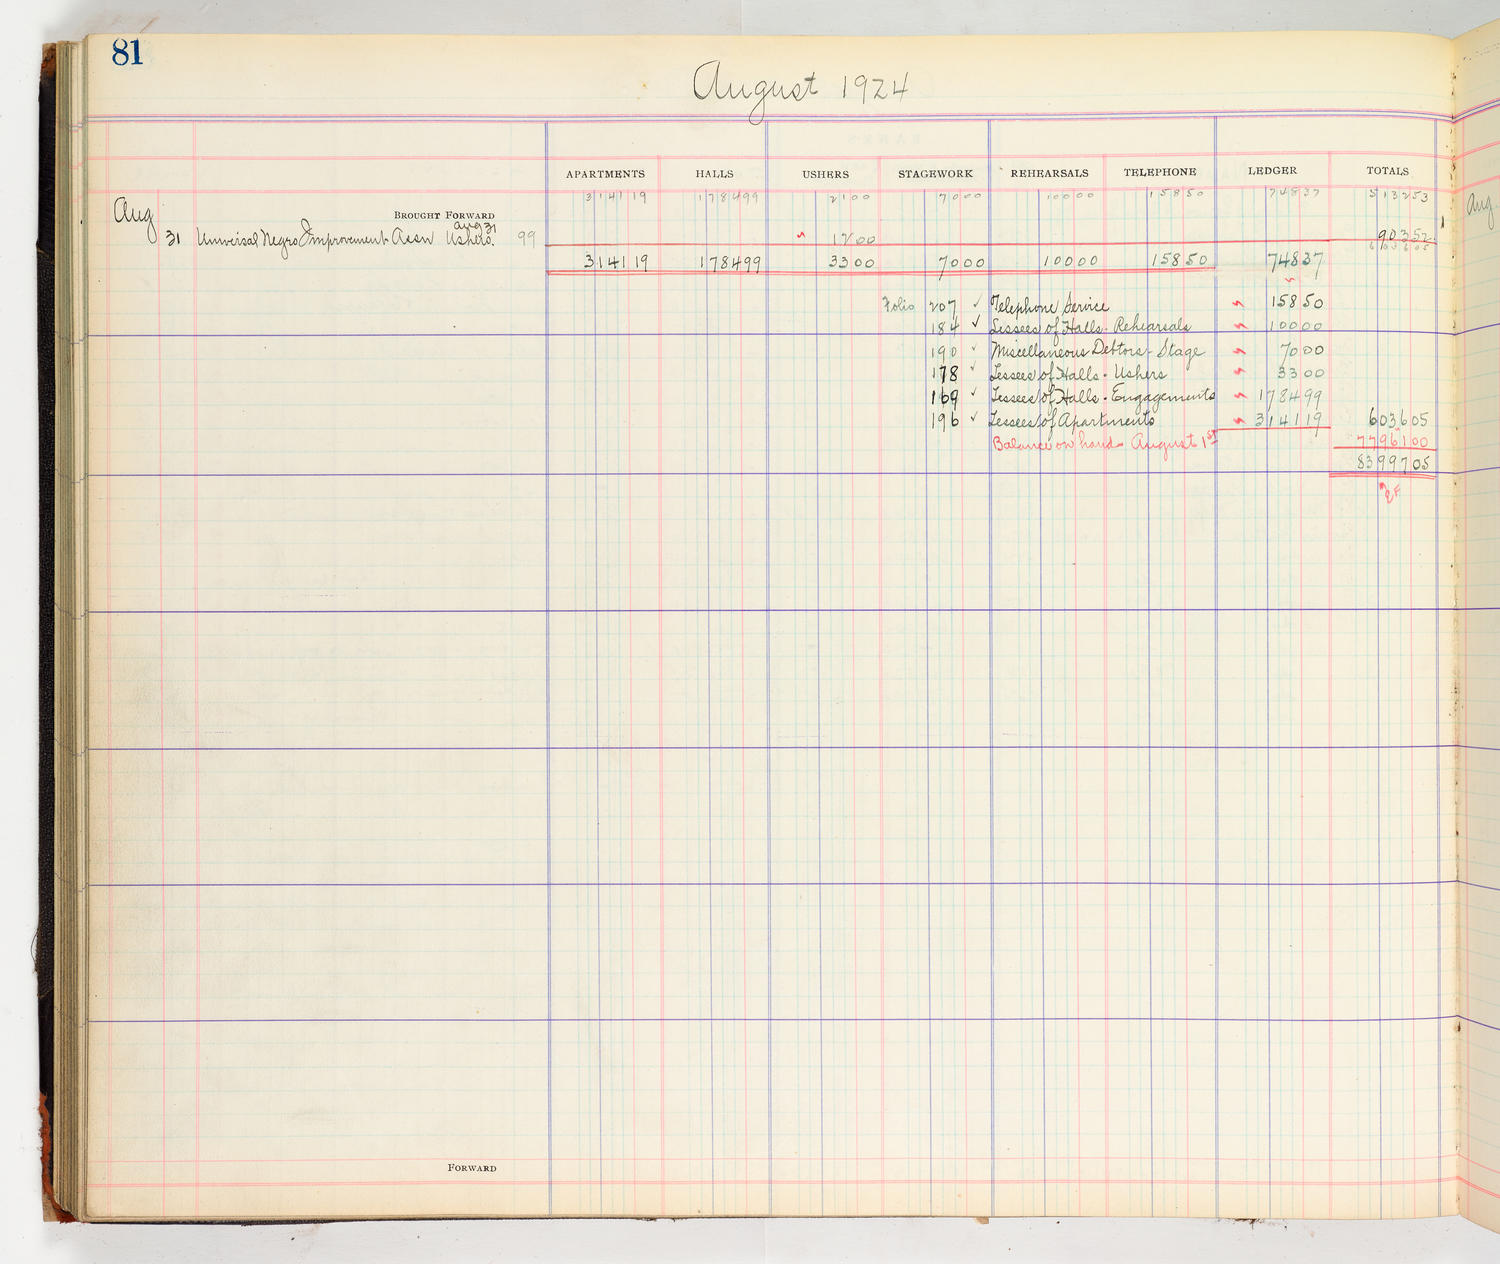 81
August 1924
APARTMENTS HALLS USHERS STAGEWORK REHEARSALS TELEPHONE LEDGER TOTALS
Aug BROUGHT FORWARD 3141 19 1784 99 21 00 70 00 100 00 158 50 748 37 5132 53 Aug
Aug 31
31 Universal Negro Improvement Assn Ushers. 99 12 00 903 52
6036 05
3141 19 1784 99 33 00 70 00 100 00 158 50 748 37
Folio 207 ✓ Telephone Service 158 50
184 ✓ Lessees of Halls - Rehearsals 100 00
190 ✓ Miscellaneous Debtors - Stage 70 00
178 ✓ Lessees of Halls - Ushers 33 00
169 ✓ Lessees of Halls - Engagements 1784 99
196 ✓ Lessees of Apartments 3141 19 6036 05
Balance on hand August 1st 77961 00
83997 05
FORWARD